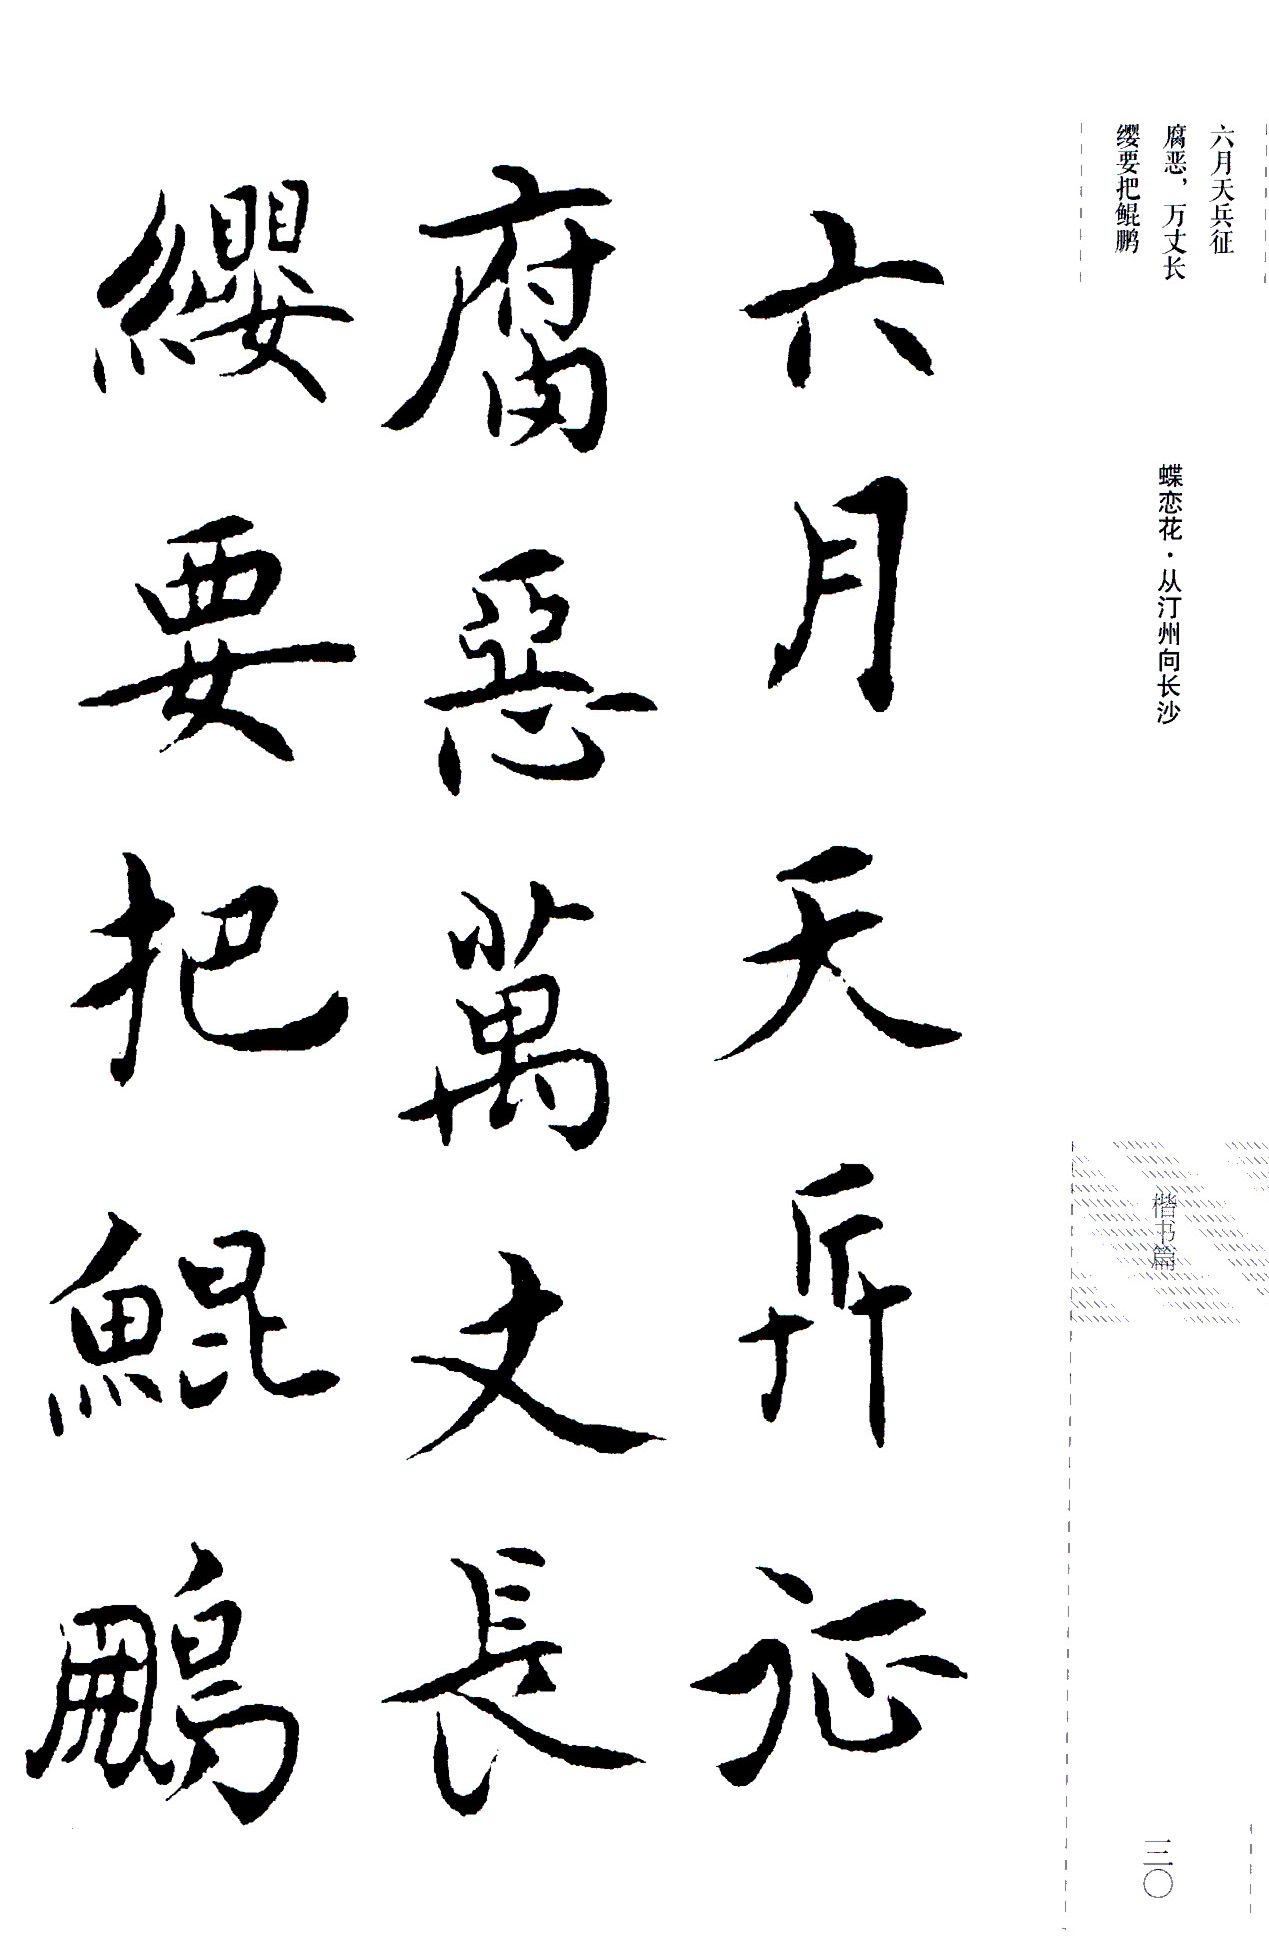 六月天兵征
腐恶，万丈长
缨要把鲲鹏
蝶恋花·从汀州向长沙
楷书篇
三〇
六月天兵征
腐惡萬丈長
纓要把鯤鵬